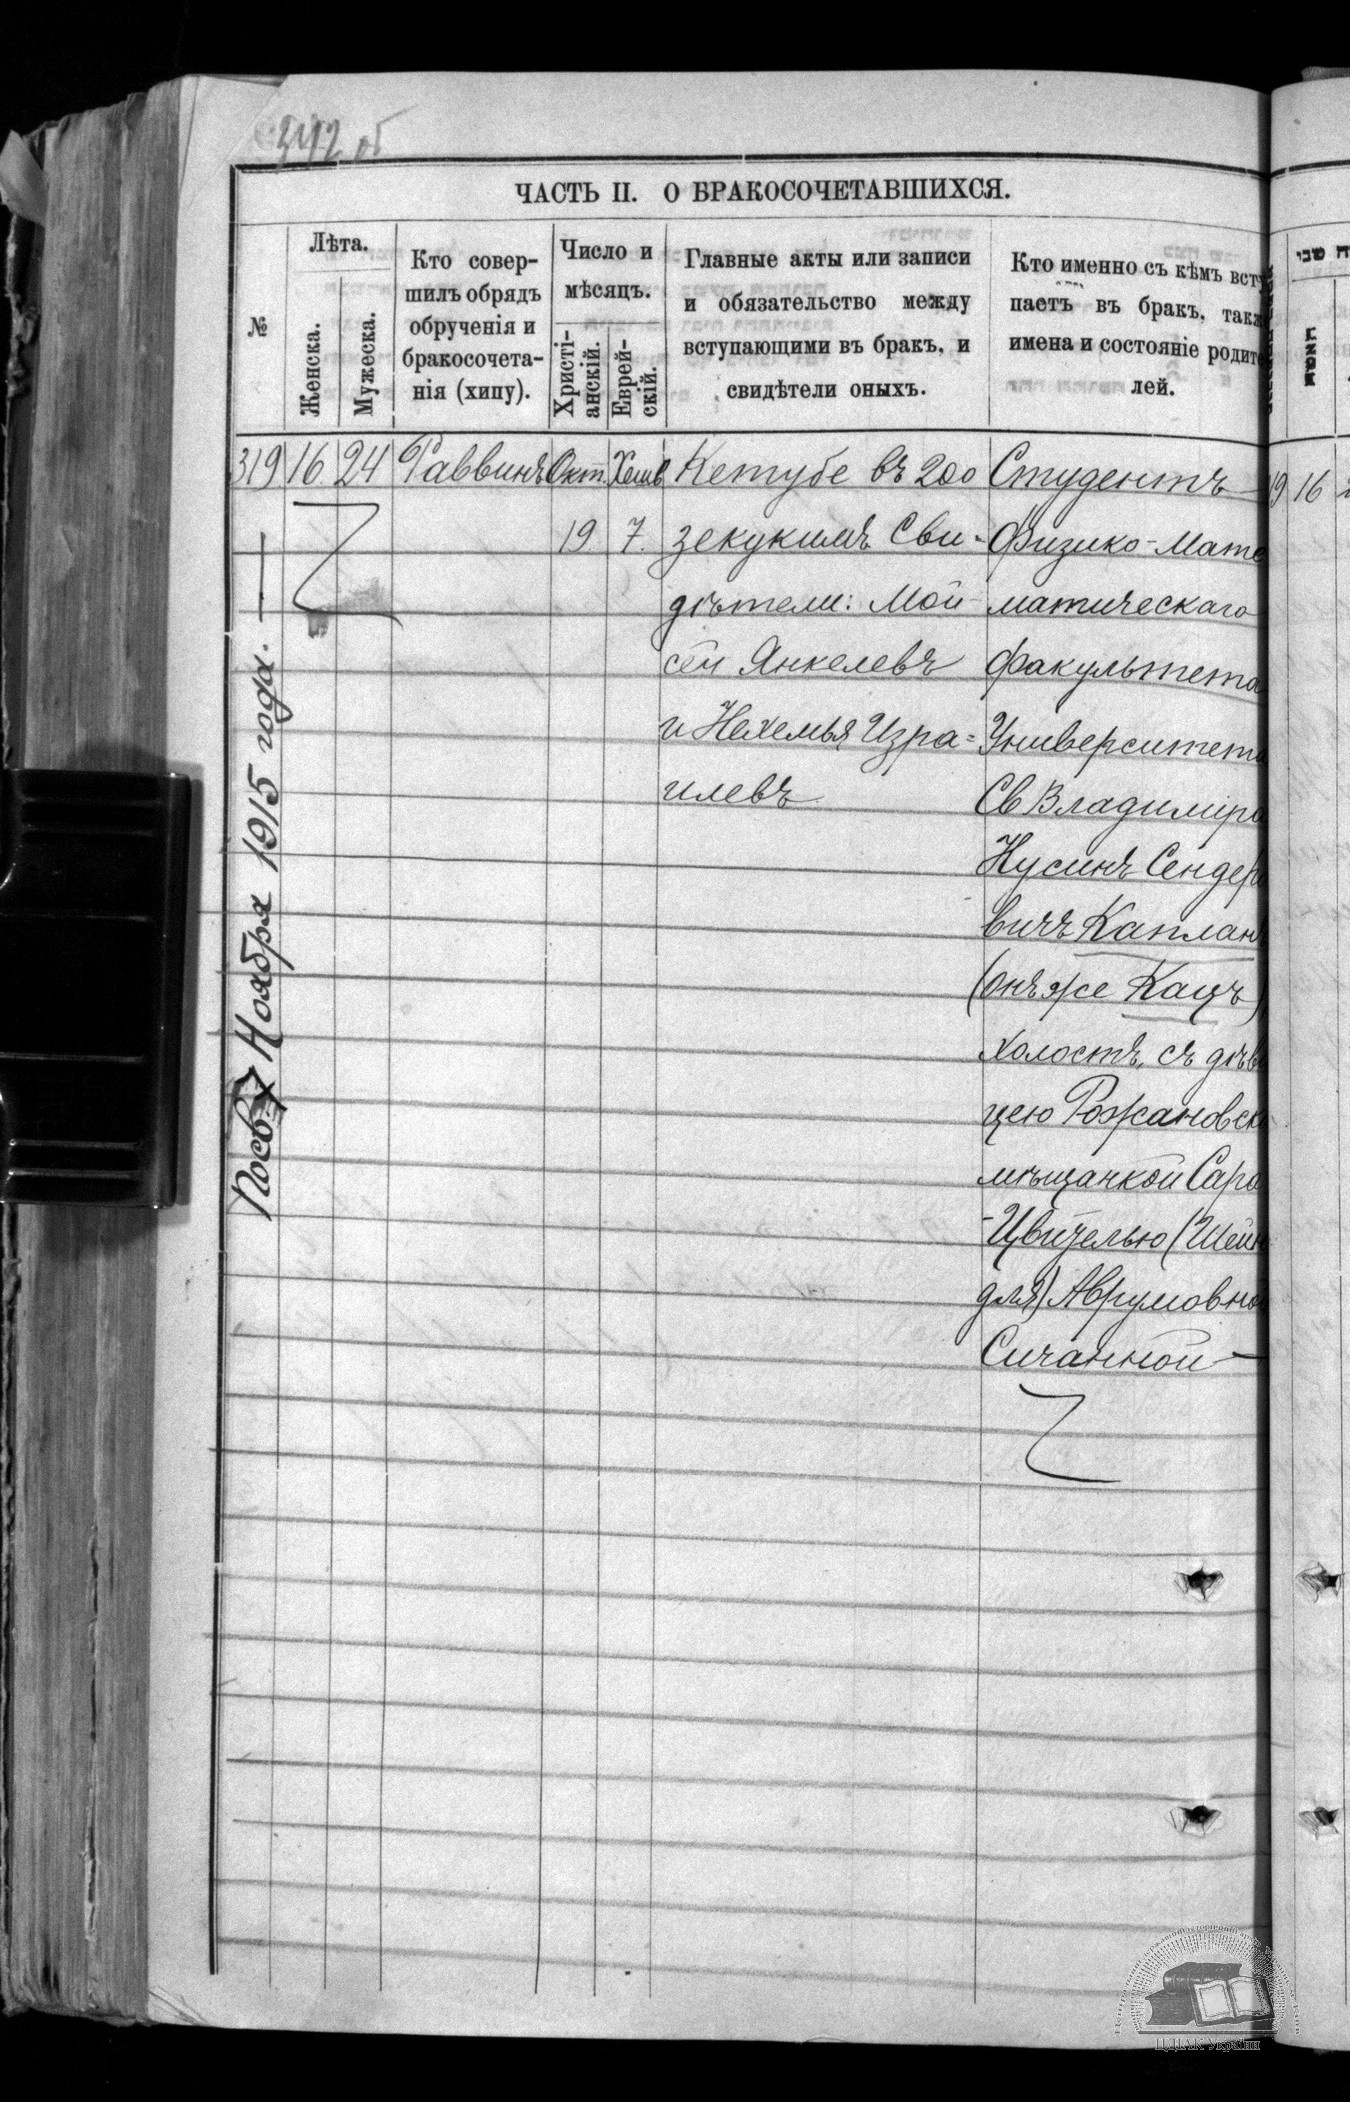 342 об
ЧАСТЬ II. О БРАКОСОЧЕТАВШИХСЯ.
№
Лѣта.
Женска.
Мужеска.
Кто совер-
шилъ обрядъ
обрученія и
бракосочета-
нія (хипу).
Число и
мѣсяцъ.
Христі-
анскій.
Еврей-
скій.
Главные акты или записи
и обязательство между
вступающими въ бракъ, и
свидѣтели оныхъ.
Кто именно съ кѣмъ всту
паетъ въ бракъ, такж
имена и состояніе родите
лей.
319 16. 24 Раввинъ Окт. Хешв
19. 7.
Кетубе въ 200
зекукимъ Сви-
дѣтели: Мой
сей Янкелевъ
и Нехемья Изра=
илевъ
Студентъ —
Физико-Мате
матическаго
факультета
Университета
Св Владиміра
Нусинъ Сендеро
вичъ Капланъ
(онъ же Кацъ)
холостъ, съ дѣви
цею Рожановск
мѣщанкой Сара
-Цвизелью (Шейн
для) Аврумовной
Сичанной —
7 Ноября 1915 года. —
19 16
שבי
ЦДІАК України